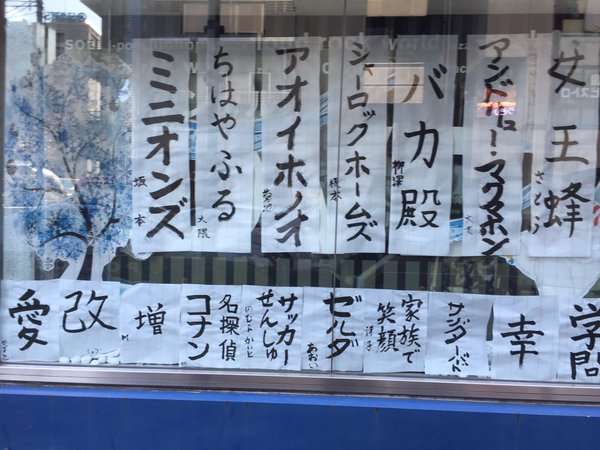 女王蜂
さとう
アンドリュー・マクマホン
バカ殿
柳澤
シャーロックホームズ
アオイホノオ
菊池
ちはやふる
大隈
ミニオンズ
坂本
学問
幸
サンダーバード
家族で
笑顔
洋子
ゼルダ
あおい
サッカー
せんしゅ
名探偵
コナン
増
M
改
愛
world